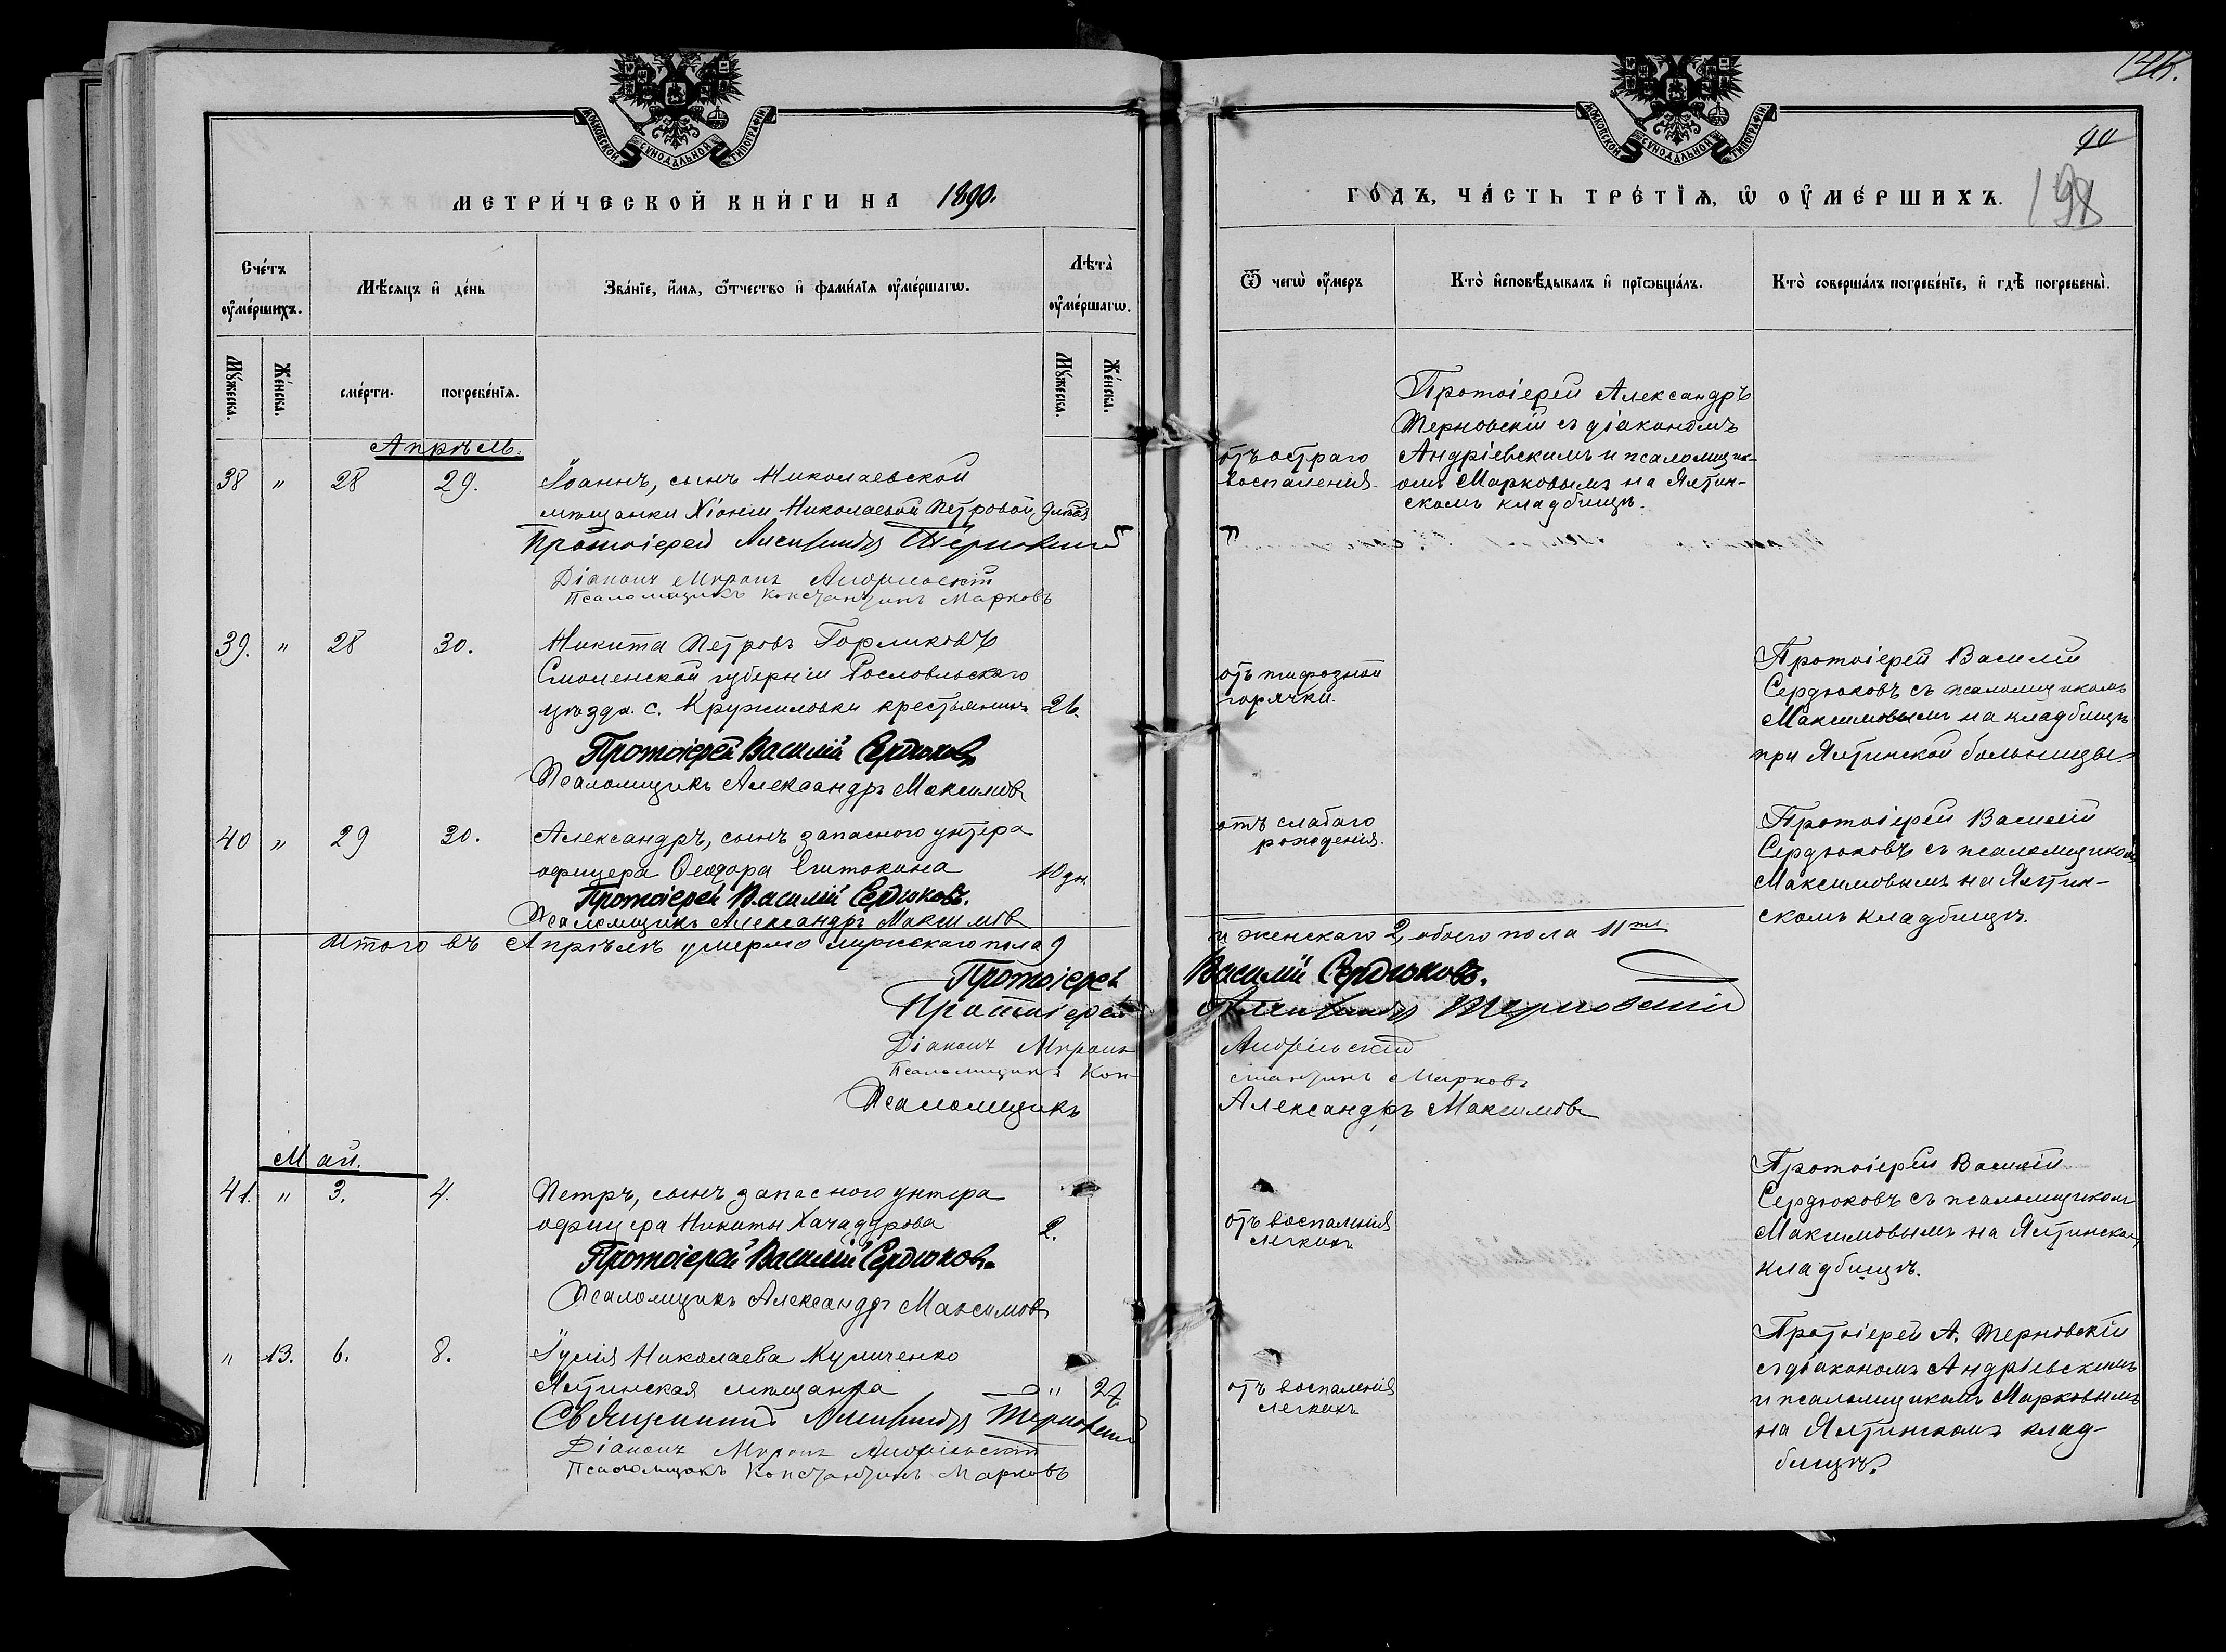 МОСКОВСКОЙ СУНОДАЛЬНОЙ ТИПОГРАФІИ
МЕТРИ́ЧЕСКОЙ КНИ́ГИ НА 1890.
Сче́тъ ᲂу҆ме́ршихъ.
Мѣ́сяцъ и҆ де́нь
Зва́нїе, и҆́мя, ѻ҆́тчество и҆ фами́лїя ᲂу҆ме́ршагѡ.
Лѣта̀ ᲂу҆ме́ршагѡ.
Му́жеска.
Же́нска.
сме́рти.
погребе́нїя.
Му́жеска.
Же́нска.
Апрѣль.
38 " 28 29. Іоаннъ, сынъ Николаевской
мѣщанки Хіоніи Николаевой Петровой, 9 лѣтъ
Протоіерей Александръ Терновскій
Діаконъ Миронъ Андріевскій
Псаломщикъ Константинъ Марковъ
39. " 28 30. Никита Петровъ Горликовъ
Смоленской губерніи Рославльскаго
уѣзда. с. Кружиловки крестьянинъ 26.
Протоіерей Василій Сердюковъ
Псаломщикъ Александръ Максимовъ
40 " 29 30. Александръ, сынъ запасного унтера
офицера Ѳеодора 10 дн.
Протоіерей Василій Сердюковъ.
Псаломщикъ Александръ Максимовъ
Итого въ Апрѣлѣ умерло мужескаго пола 9
Протоіерей
Протоіерей
Діаконъ Миронъ
Псаломщикъ Кон-
Псаломщикъ
Май.
41. " 3. 4. Петръ, сынъ запасного унтера
офицера Никиты Хачадурова 2.
Протоіерей Василій Сердюковъ
Псаломщикъ Александръ Максимовъ
" 13. 6. 8. Іулія Николаева Куличенко
Ялтинская мѣщанка " 27.
Священникъ Александръ Терновскій
Діаконъ Миронъ Андріевскій
Псаломщикъ Константинъ Марковъ
МОСКОВСКОЙ СУНОДАЛЬНОЙ ТИПОГРАФІИ
90
ГО́ДЪ, ЧА́СТЬ ТРЕ́ТЇѦ, Ѡ҆ ОУ҆МЕ́РШИХЪ. 198
Ѿ чегѡ̀ ᲂу҆́меръ
Кто̀ и҆сповѣ́дывалъ и҆ прїѡбща́лъ.
Кто̀ соверша́лъ погребе́нїе, и҆ гдѣ̀ погребены̀.
Протоіерей Александръ
Терновскій съ діакономъ
отъ остраго Андріевскимъ и псаломщик-
воспаленія. омъ Марковымъ на Ялтин-
скомъ кладбищѣ.
отъ тифозной
горячки.
Протоіерей Василій
Сердюковъ съ псаломщикомъ
Максимовымъ на кладбищѣ
при Ялтинской больницы.
отъ слабаго
рожденія.
Протоіерей Василій
Сердюковъ съ псаломщикомъ
Максимовымъ на Ялтин-
скомъ кладбищѣ.
и женскаго 2, обоего пола 11ть
Василій Сердюковъ.
Александръ Терновскій
Андріевскій
стантинъ Марковъ
Александръ Максимовъ
отъ воспаленія
легкихъ
Протоіерей Василій
Сердюковъ съ псаломщикомъ
Максимовымъ на Ялтинском
кладбищѣ.
отъ воспаленія
легкихъ
Протоіерей А. Терновскій
съ діакономъ Андріевскимъ
и псаломщикомъ Марковымъ
на Ялтинскомъ клад-
бищѣ.